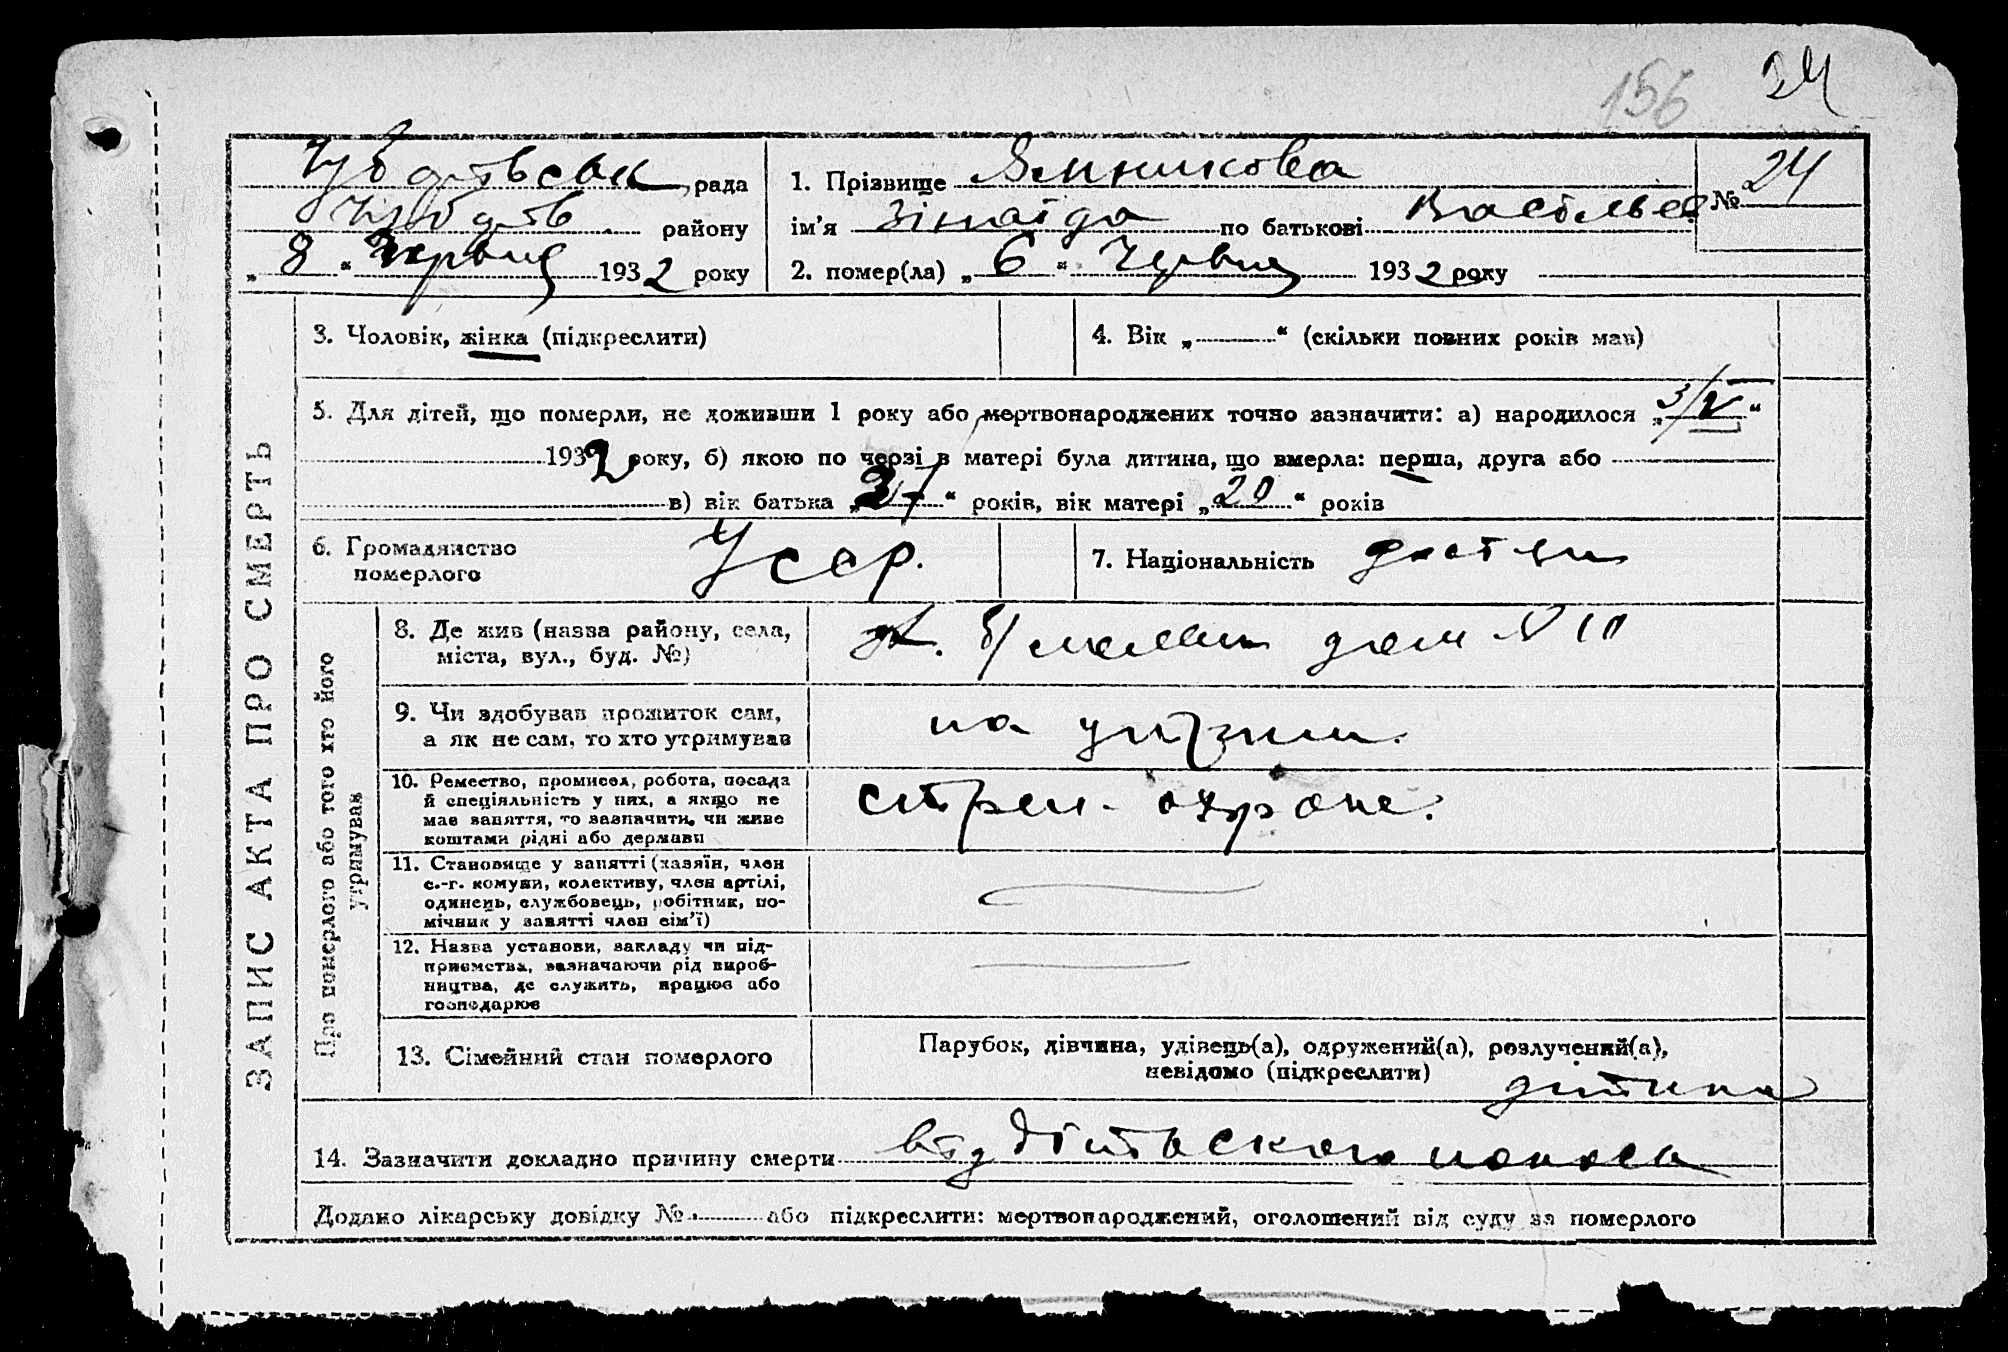 156 24
рада
1. Прізвище Ямникова
№ 24
району
ім'я Зінаїда по батькові Васільев.
„ 8 “ Червня 1932 року
2. помер(ла) „ 6 “ Червня 1932 року
ЗАПИС АКТА ПРО СМЕРТЬ
3. Чоловік, жінка (підкреслити)
4. Вік „ “ (скільки повних років мав)
5. Для дітей, що померли, не доживши 1 року або мертвонароджених точно зазначити: а) народилося „ 3/V “
1932 року, б) якою по черзі в матері була дитина, що вмерла: перша, друга або
в) вік батька „ “ років, вік матері „ 20 “ років
6. Громадянство
померлого
Усср.
7. Національність
Про померлого або того хто його
утримував
8. Де жив (назва району, села,
міста, вул., буд. №)
дом № 10
9. Чи здобував прожиток сам,
а як не сам, то хто утримував
на
10. Ремество, промисел, робота, посада
й спеціяльність у них, а якщо не
має заняття, то зазначити, чи живе
коштами рідні або держави
стрел. охране.
11. Становище у занятті (хазяїн, член
с.-г. комуни, колективу, член артілі,
одинець, службовець, робітник, по-
мічник у занятті член сім'ї)
12. Назва установи, закладу чи під-
приємства, зазначаючи рід вироб-
ництва, де служить, працює або
господарює
13. Сімейний стан померлого
Парубок, дівчина, удівець(а), одружений(а), розлучений(а),
невідомо (підкреслити)
дитина
14. Зазначити докладно причину смерти від дітьского поноса
Додано лікарську довідку № або підкреслити: мертвонароджений, оголошений від суду за померлого